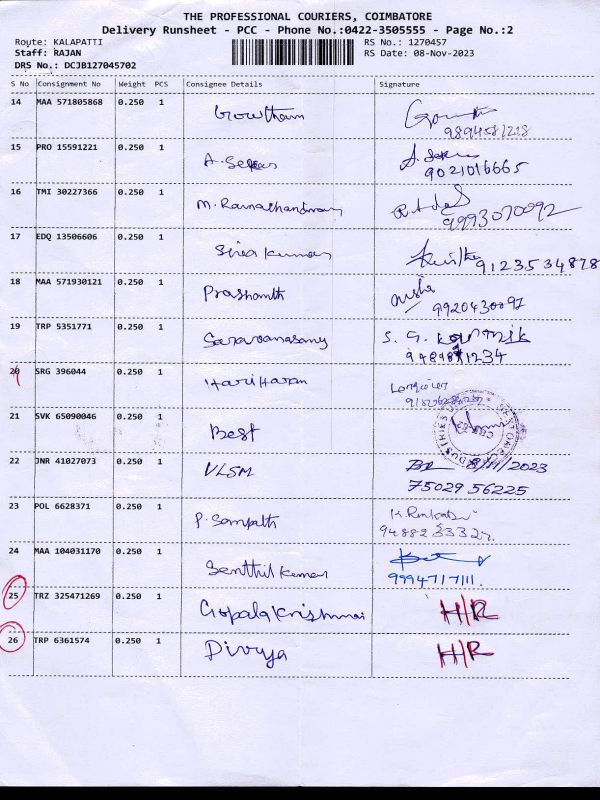 THE PROFESSIONAL COURIERS, COIMBATORE
Delivery Runsheet - PCC - Phone No.:0422-3505555 - Page No.:2
Route: KALAPATTI RS No.: 1270457
Staff: RAJAN RS Date: 08-Nov-2023
DRS No.: DCJB127045702
S No Consignment No Weight PCS Consignee Details Signature
14 MAA 571805868 0.250 1 Gowtham
15 PRO 15591221 0.250 1 A. Sekar
9021016665
16 TMI 30227366 0.250 1 M. Ramachandran
9993070092
17 EDQ 13506606 0.250 1 Siva Kumar
9123534878
18 MAA 571930121 0.250 1 Prashanth
9920430097
19 TRP 5351771 0.250 1 Saravanasamy S. G.
20 SRG 396044 0.250 1 Hari Haran
21 SVK 65090046 0.250 1 Best
22 JNR 41027073 0.250 1 VLSM 8/11/2023
75029 56225
23 POL 6628371 0.250 1 P. Sampath
24 MAA 104031170 0.250 1 Senthil Kumar
9994717111.
25 TRZ 325471269 0.250 1 Gopala Krishnan H/R
26 TRP 6361574 0.250 1 Divya H/R